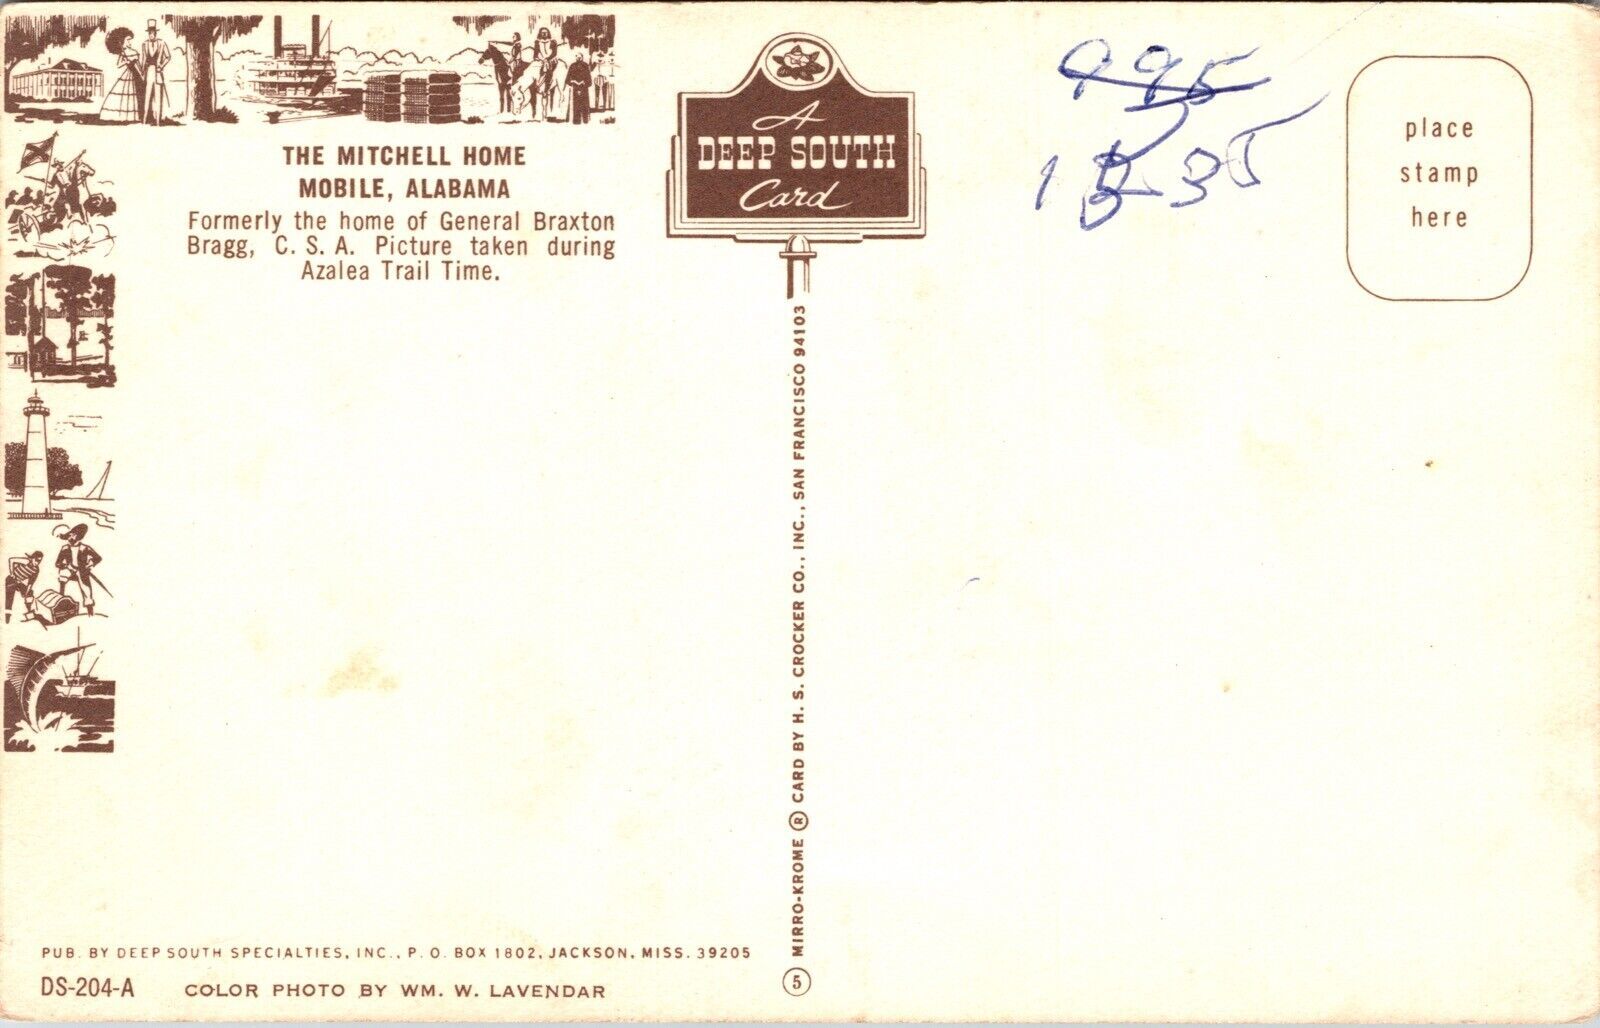 THE MITCHELL HOME
MOBILE, ALABAMA
Formerly the home of General Braxton
Bragg, C. S. A. Picture taken during
Azalea Trail Time.
A
DEEP SOUTH
Card
995
place
stamp
here
MIRRO-KROME ® CARD BY H. S. CROCKER CO., INC., SAN FRANCISCO 94103
5
PUB. BY DEEP SOUTH SPECIALTIES, INC., P. O. BOX 1802, JACKSON, MISS. 39205
DS-204-A COLOR PHOTO BY WM. W. LAVENDAR